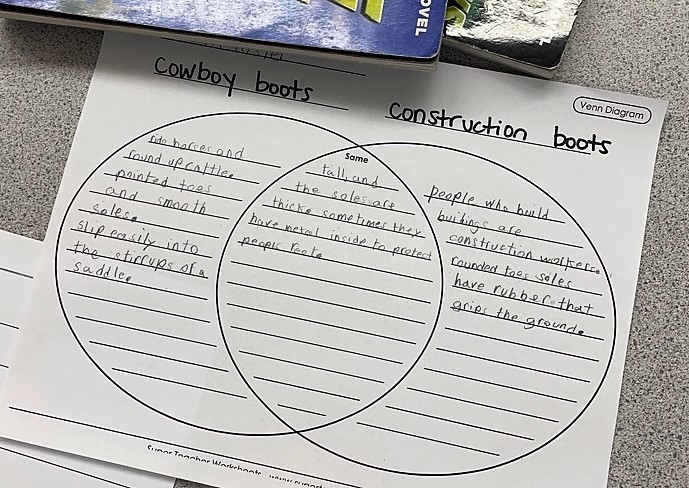 OVEL
Cowboy boots
Construction boots
Venn Diagram
ride horses and
round up cattle.
pointed toes
and smooth
soles.
slip easily into
the stirrups of a
saddle.
Same
tall and
the soles are
thick. sometimes they
have metal inside to protect
people feet.
people who build
buildings are
construction workers.
rounded toes soles
have rubber that
grips the ground.
Super Teacher Worksheets